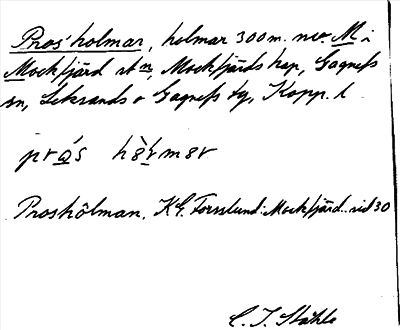 Pros'holmar, holmar 300 m. nv. M i
Mockfjärd st n, Mockfjärds kap, Gagnefs
sn, Leksands o Gagnefs tg, Kopp. l.
Prosholman. K.G. Forsslund: Mockfjärd. sid 30
C. I. Ståhle